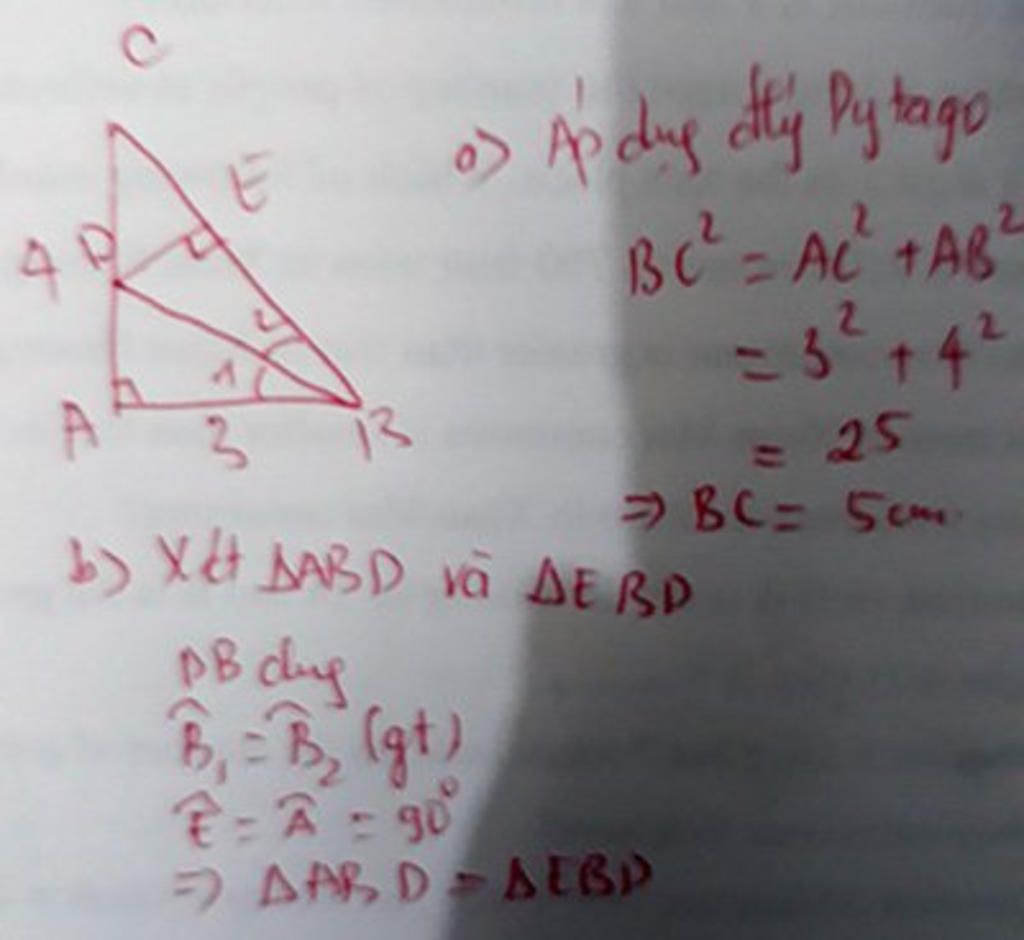 C
E
4 D
A
1
3
B
a) Áp dụg đlý Pytago
BC² = AC² + AB²
= 3² + 4²
= 25
⇒ BC = 5cm
b) Xét ΔABD và ΔEBD
DB chug
B̂₁ = B̂₂ (gt)
Ê = Â = 90°
⇒ ΔABD = ΔEBD